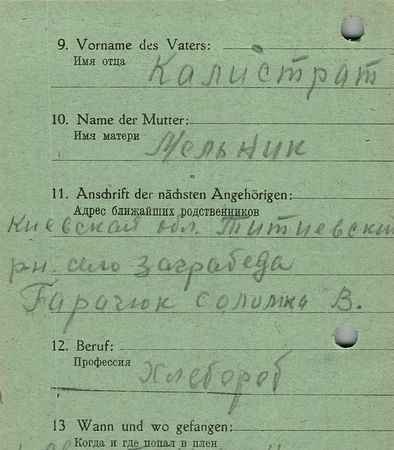 9. Vorname des Vaters:
Имя отца
Калистрат
10. Name der Mutter:
Имя матери
Мельник
11. Anschrift der nächsten Angehörigen:
Адрес ближайших родственников
Киевская обл. Титиевский
рн. село Заграбеда
Гарачюк Соломка В.
12. Beruf:
Профессия
Хлебороб
13 Wann und wo gefangen:
Когда и где попал в плен